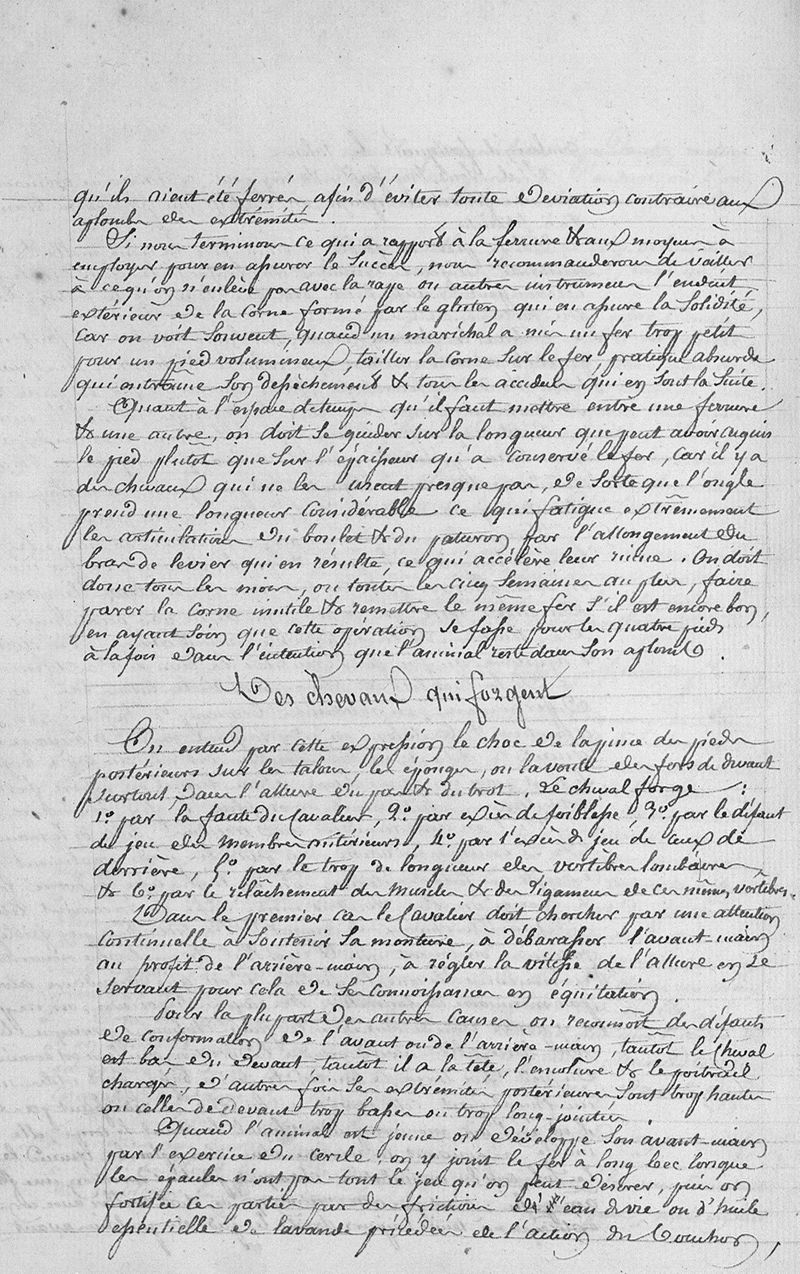 qu'ils aient été ferrés afin d'éviter toute déviation contraire aux
aplombs des extrémités.
Si nous terminons ce qui a rapport à la ferrure & aux moyens à
employer pour en assurer le succès, nous recommanderons de vailler
à ce qu'on n'enlève pas avec la rape ou autres instrumens l'enduit
extérieur de la corne formé par le gluten qui en assure la solidité,
car on voit souvent, quand un maréchal a mis un fer trop petit
pour un pied volumineux, tailler la corne sur le fer pratique absurde
qui entraine son dépèchement & tous les accidens qui en sont la suite.
Quant à l'espace de tems qu'il faut mettre entre une ferrure
& une autre, on doit se guider sur la longueur que peut avoir aquis
le pied plutot que sur l'épaisseur qu'a conservé le fer, car il y a
des chevaux qui ne les usent presque pas, de sorte que l'ongle
prend une longueur considérable ce qui fatigue extrêmement
les articulations du boulet & du paturon par l'allongement du
bras de levier qui en résulte, ce qui accélère leur ruine. On doit
donc tous les mois, ou toutes les cinq semaines au plus, faire
parer la corne inutile & remettre le même fer s'il est encore bon,
en ayant soin que cette opération se fasse pour les quatre pieds
à la fois dans l'intention que l'animal reste dans son aplomb.
Des chevaux qui forgent
On entend par cette expression le choc de la pince des pieds
postérieurs sur les talons, les éponges, ou la voute des fers de devant
surtout, dans l'allure du pas & du trot. Le cheval forge :
1.º par la faute du Cavalier, 2.º par excès de foiblesse, 3.º par le défaut
de jeu des membres antérieurs, 4.º par l'excès de jeu de ceux de
derrière, 5.º par le trop de longueur des vertèbres lombaires
& 6.º par le relâchement des muscles & des ligamens de ces mêmes vertèbres.
Dans le premier cas le Cavalier doit chercher par une attention
continuelle à soutenir sa monture, à débarasser l'avant-main
au profit de l'arrière-main, à régler la vitesse de l'allure en se
servant pour cela de ses connoissances en équitation.
Pour la plupart des autres causes on reconnoît des défauts
de conformation de l'avant ou de l'arrière-main, tantôt le cheval
est bas du devant, tantôt il a la tête, l'encolure & le poitrail
chargés, d'autres fois ses extrémités postérieures sont trop hautes
ou celles de devant trop basses ou trop long-jointées.
Quand l'animal est jeune on développe son avant-main
par l'exercice du cercle : on y joint le fer à long bec lorsque
les épaules n'ont pas tout le jeu qu'on peut désirer, puis on
fortifie ces parties par des frictions d'eau de vie ou d'huile
essentielle de lavande précédées de l'action du bouchon,